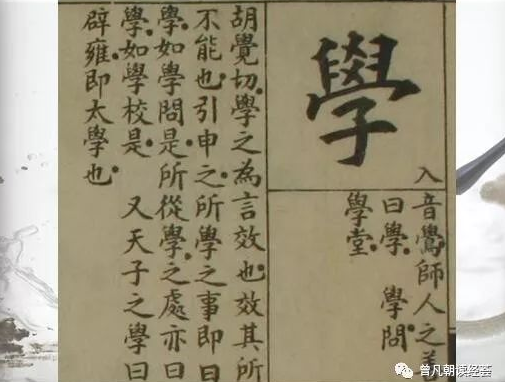 學
入
音鷽師人之
曰學 學問
學堂
胡覺切學之為言效也效其所
不能也引申之所學之事即曰
學如學問是所從學之處亦曰
學如學校是 又天子之學曰
辟雍即太學也
曾凡朝读经荟